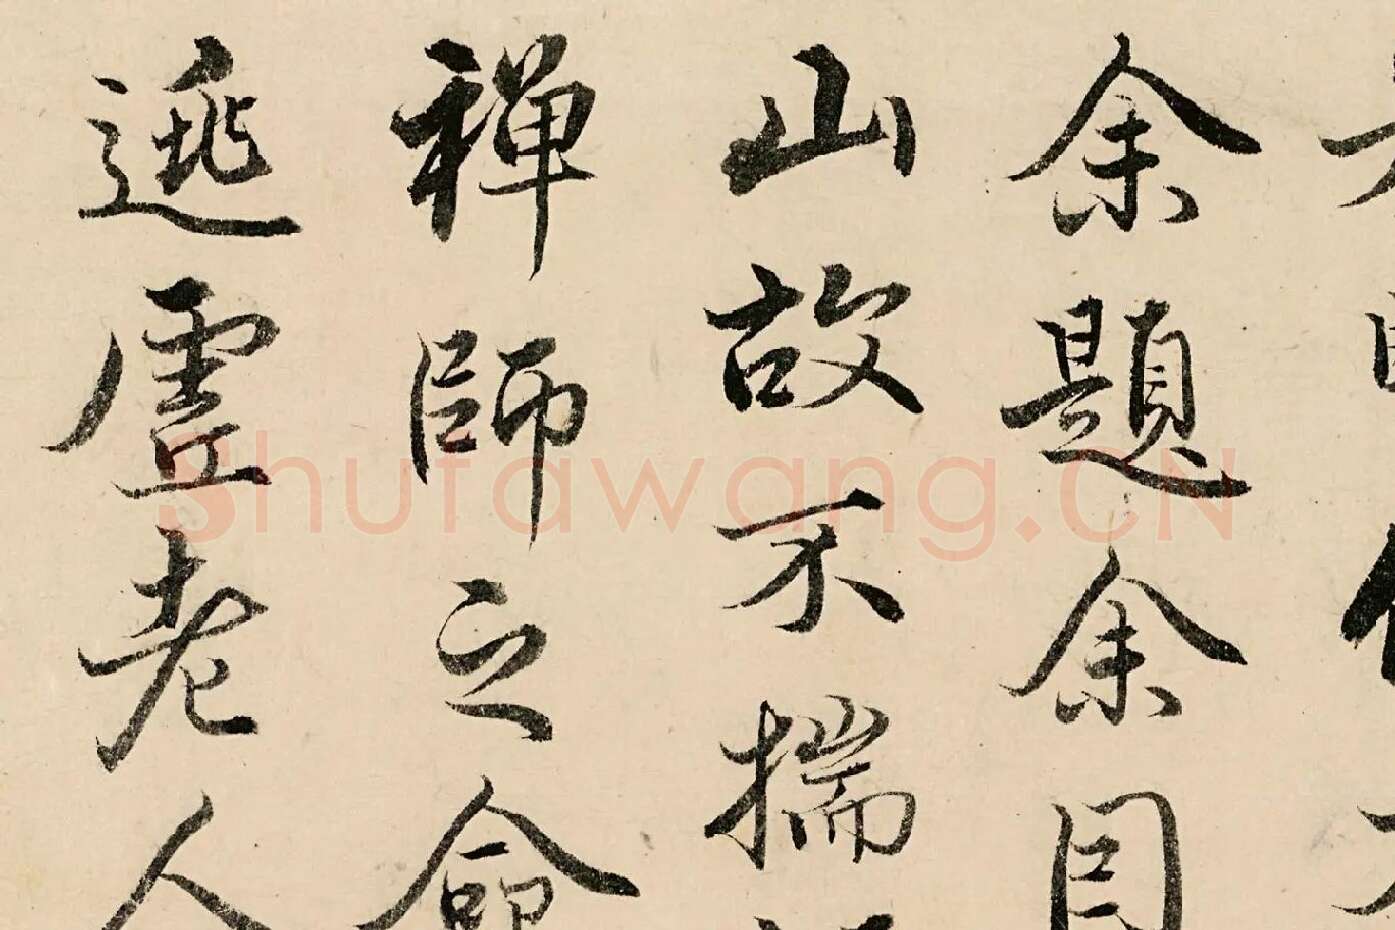 余題余
山故不揣
禪師之命
逃虛老人
Shufawang.CN